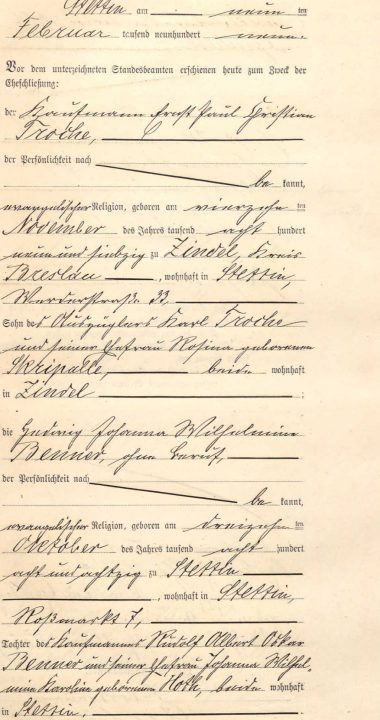 Stettin am neun ten
Februar tausend neunhundert neun.
Vor dem unterzeichneten Standesbeamten erschienen heute zum Zweck der
Eheschließung:
der Kaufmann Ernst Paul Christian
Troche,
der Persönlichkeit nach
be kannt,
evangelischer Religion, geboren am vierzehn ten
November des Jahres tausend acht hundert
neun und siebzig zu Zindel, Kreis
Breslau, wohnhaft in Stettin,
Werderstraße 33,
Sohn des Auszüglers Karl Troche
und seiner Ehefrau Rosina geborenen
Skripalle, beide wohnhaft
in Zindel
die Hedwig Johanna Wilhelmine
Benner, ohne Beruf,
der Persönlichkeit nach
be kannt,
evangelischer Religion, geboren am dreizehn ten
Oktober des Jahres tausend acht hundert
acht und achtzig zu Stettin
, wohnhaft in Stettin,
Roßmarkt 7,
Tochter des Kaufmannes Rudolf Albert Oskar
Benner und seiner Ehefrau Johanna Wilhel-
mine Karoline geborenen Noth, beide wohnhaft
in Stettin,